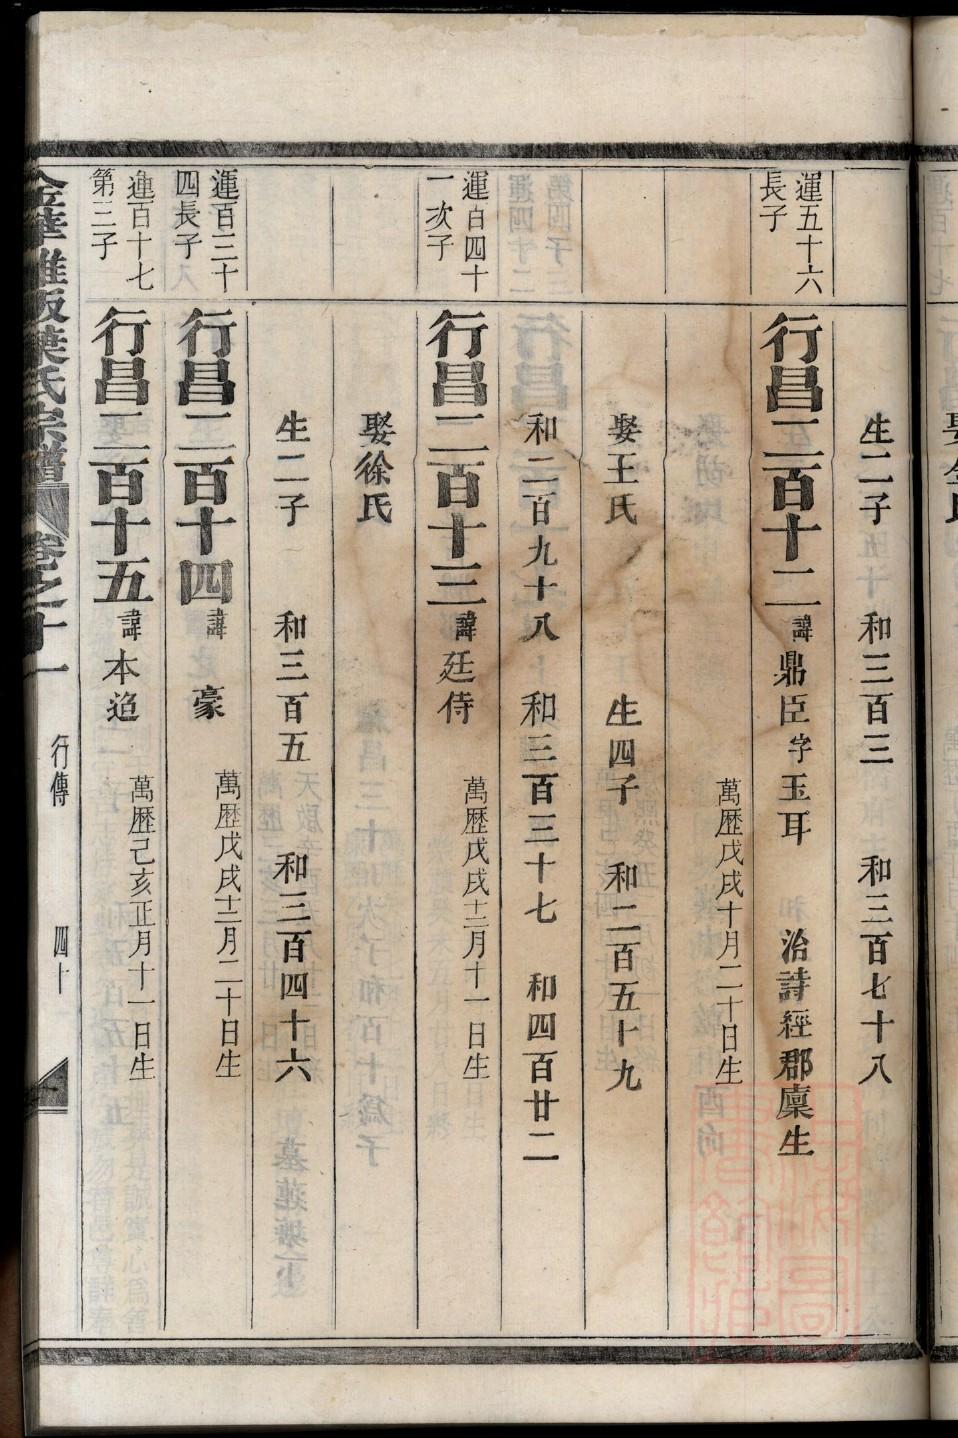 生二子 和三百三 和三百七十八
運五十六
長子
行昌二百十二 諱鼎臣 字玉耳 治詩經郡廩生
萬歷戊戌十月二十日生
娶王氏 生四子 和二百五十九
和二百九十八 和三百三十七 和四百廿二
運百四十
一次子
行昌二百十三 諱廷侍
萬歷戊戌十二月十一日生
娶徐氏
生二子 和三百五 和三百四十六
運百三十
四長子
行昌二百十四 諱豪
萬歷戊戌十二月二十日生
運百十七
第三子
行昌二百十五 諱本追
萬歷己亥正月十一日生
葉氏宗譜 卷之十一 行傳 四十